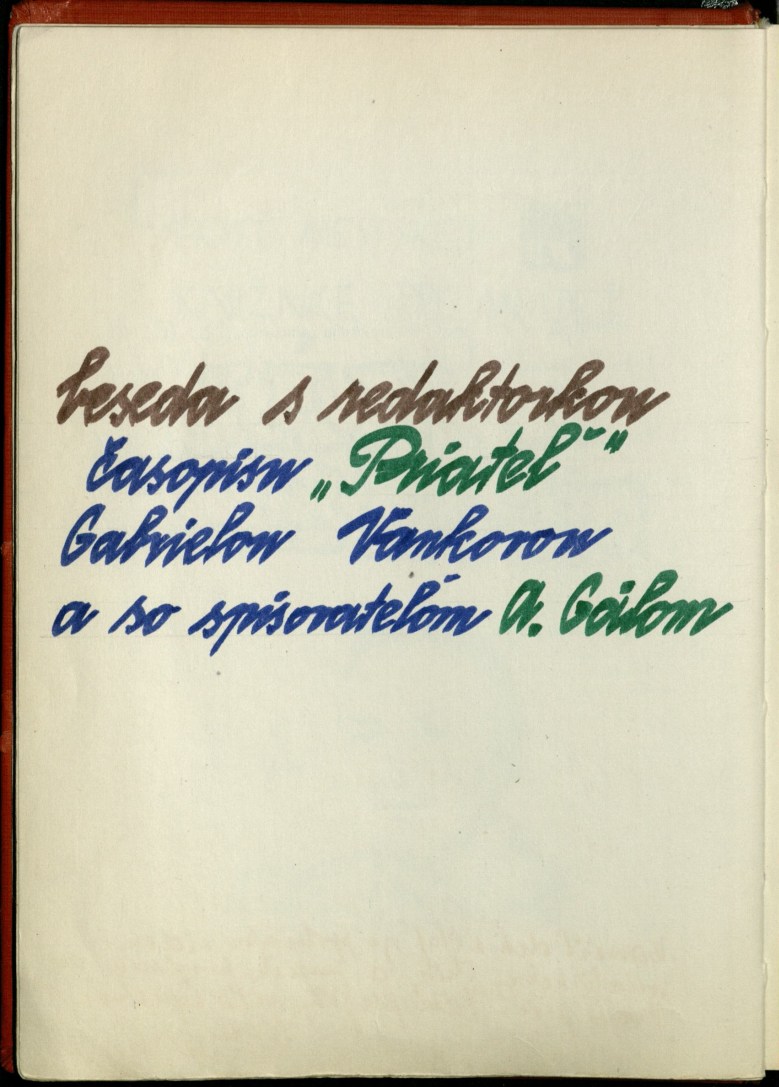 beseda s redaktorkou
časopisu „Priateľ"
Gabrielou Vankovou
a so spisovateľom A. Gálom